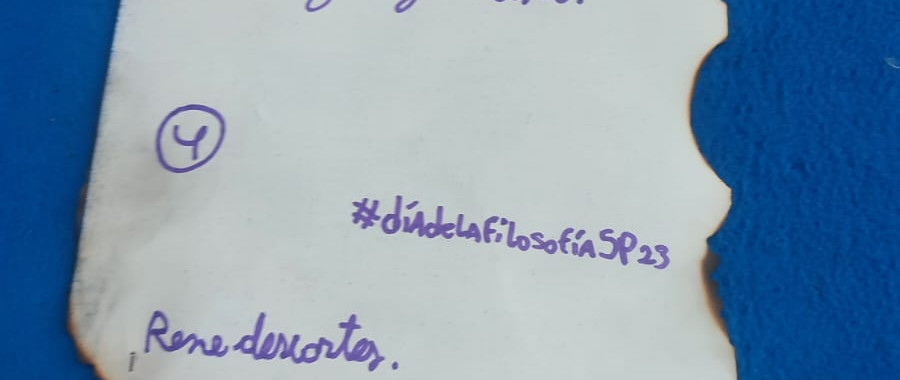 4
#díAdeLAfiLosofíASP23
Rene descortes.